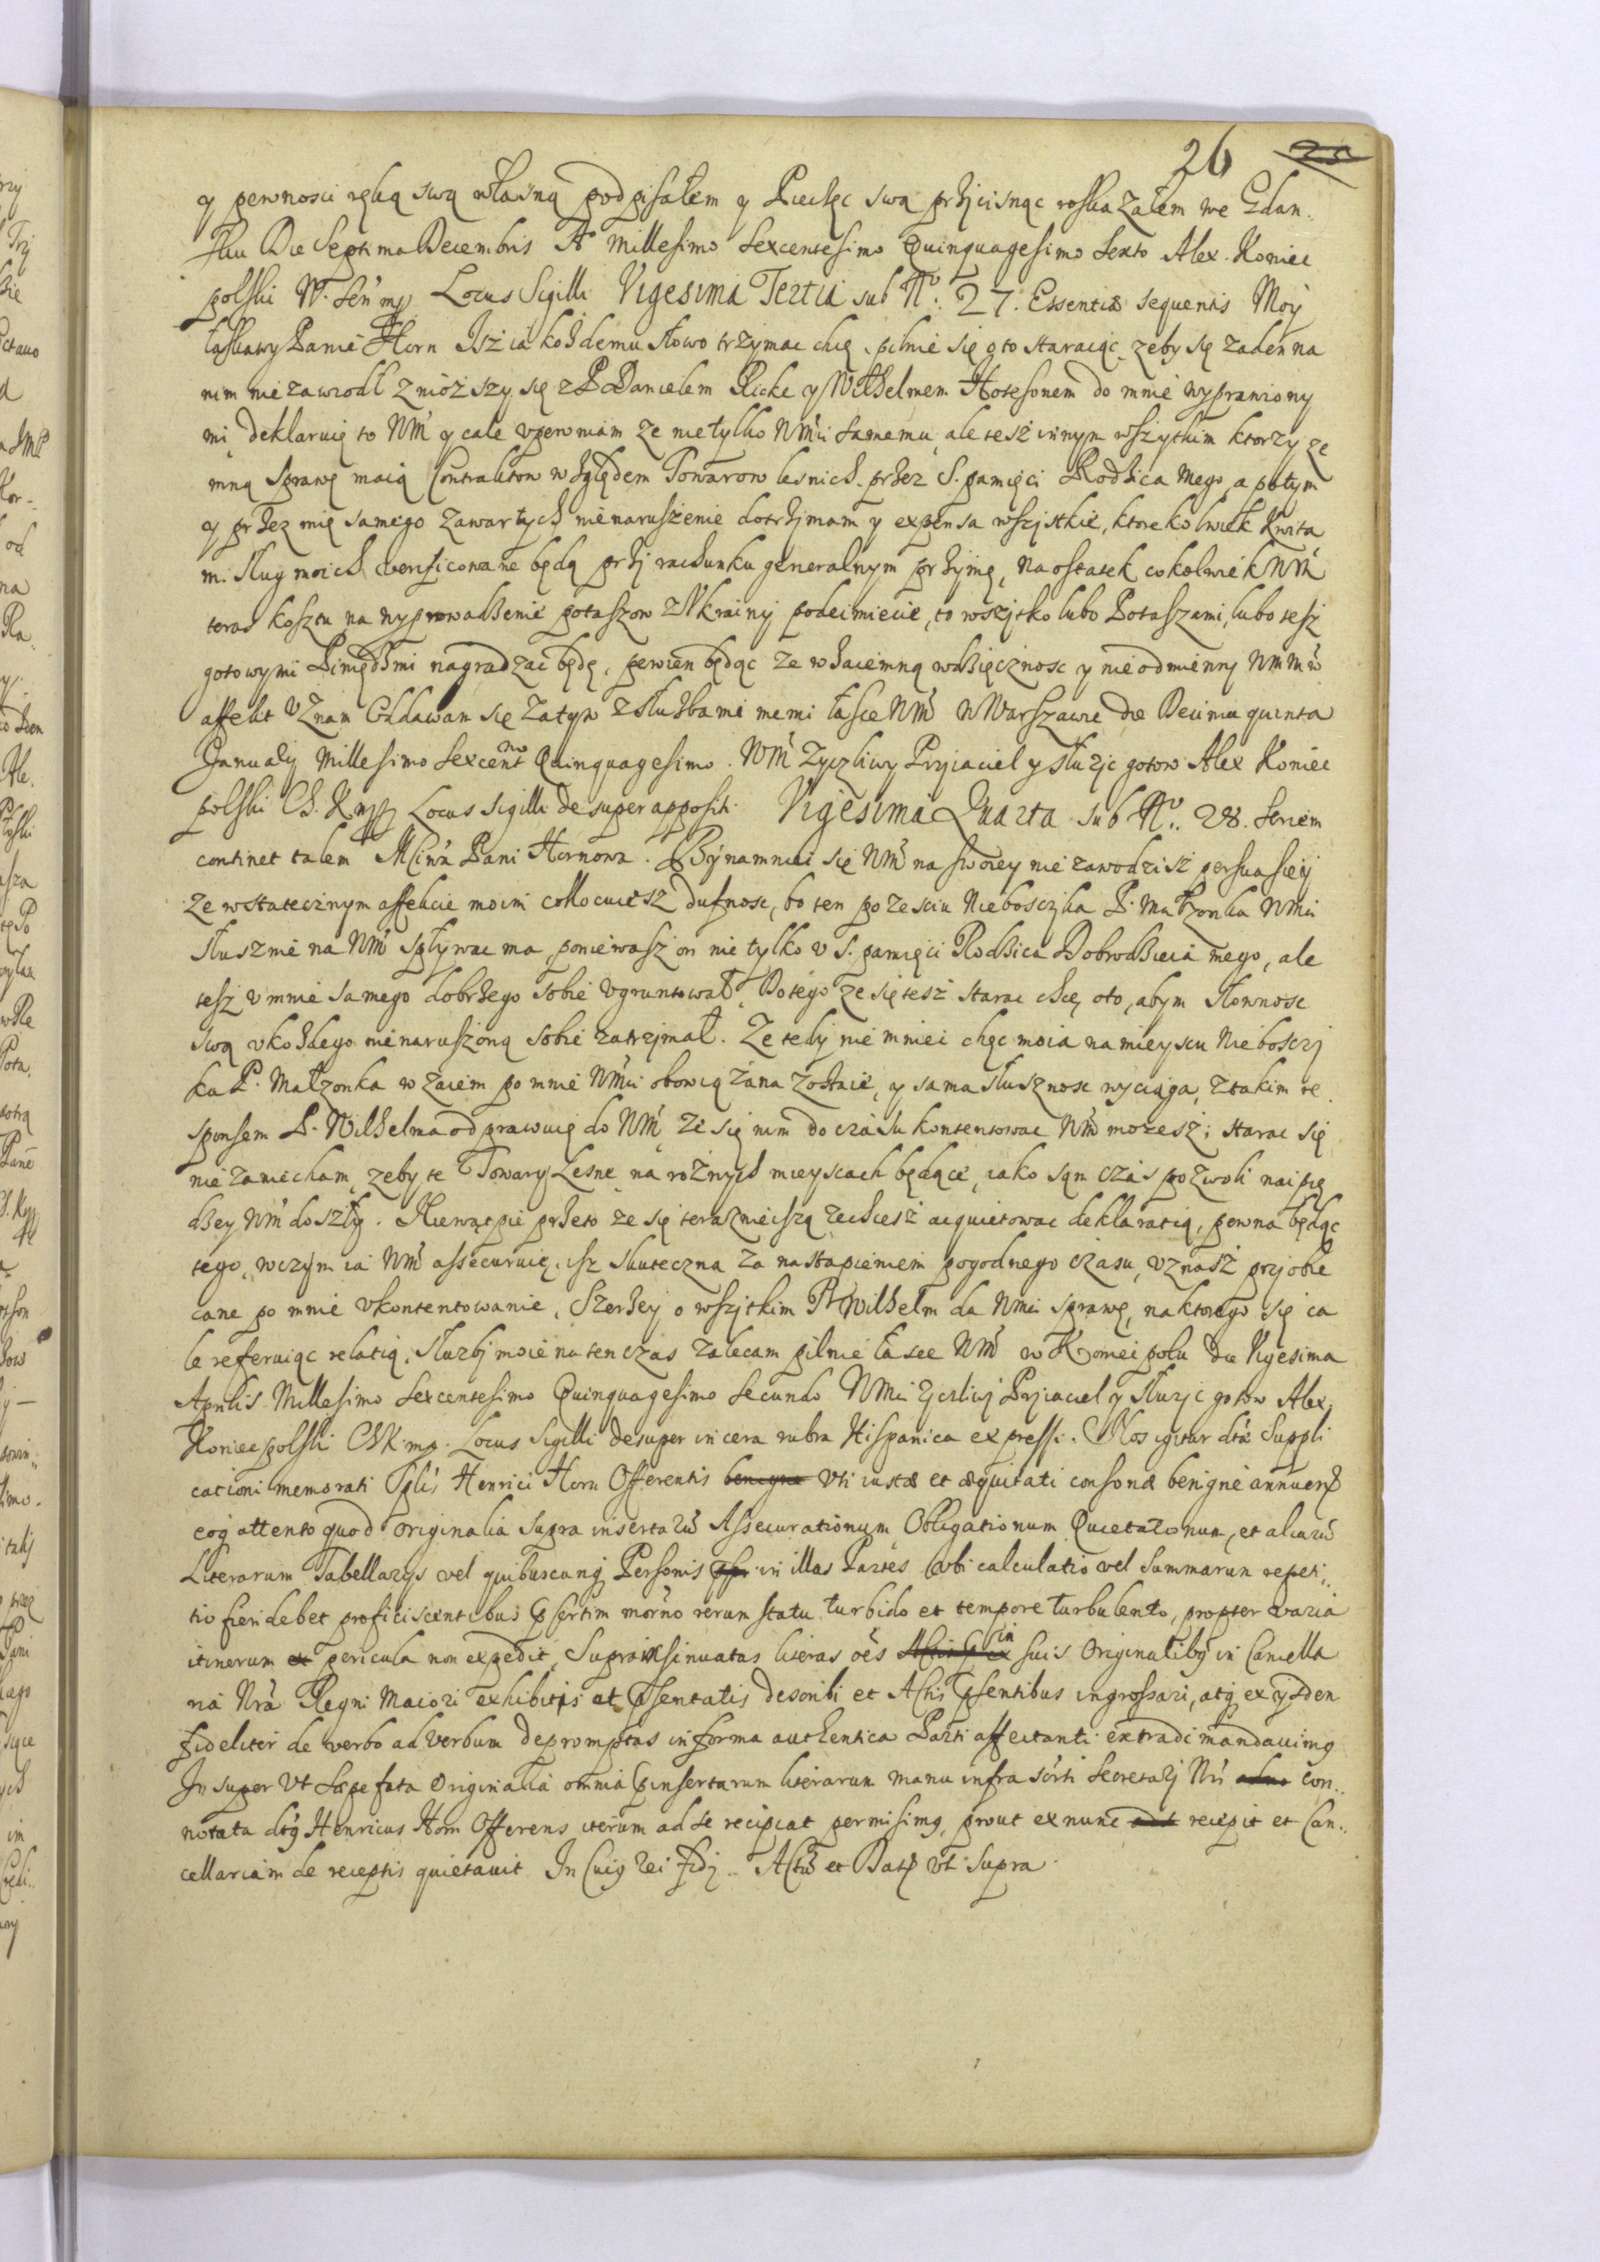 26 25
y pewnosci ręką swą własną podpisałem y Pieczęc swą przycisnąc roskazałem we Gdan..
sku Die Septima Decembris A° Millesimo Sexcentesimo Quinquagesimo Sexto Alex. Koniec
polski W. Sen̄ mp Locus Sigilli Vigesima Tertia sub N°. 27. Essentiæ sequentis Moy
łaskawy Panie Horn Isz ia kozdemu słowo trzymac chcę, pilnie się o to staraiąc, zeby się zaden na
nim nie zawiodł zniozszy się z P Danielem Ricke y Wilhelmem Hotesonem do mnie wyprawiony
mi, deklaruię to WM y cale vpewniam ze nie tylko WMci samemu, ale tesz innym wszytkim ktorzy ze
mną sprawę maią Contraktow względem Towarow lesnich przez S. pamięci Rodzica mego, a potym
y przez mię samego zawartych nienaruszenie dotrzymam y expensa wszystkie, ktorekolwiek kwita
mi sług moich verificowane będą przy rachunku generalnym przyimę, na ostatek cokolwiek WM
teras kosztu na wyprowadzenie potaszow z Vkrainy podeimiecie, to wszytko lubo Potaszami, lubo tesz
gotowymi Pieniędzmi nagradzac będę, pewien będąc ze wzaiemną wdzięcznosc y nieodmienny WMM
affekt vznam Oddawam się zatym z słuzbami memi łasce WM W Warszawie die Decima quinta
Januarij Millesimo Sexcentmo Quinquagesimo. WM Zyczliwy Przyiaciel y słuzyc gotow Alex Koniec
polski Ch. K. mp Locus Sigilli desuper appositi. Vigesima Quarta sub N°.. 28. Seriem
continet talem Mciwa Pani Hornowa. Bynamniei się WM na swoiey nie zawodzisz persuasiey
ze w statecznym affekcie moim collocuiesz dufnosc, bo ten po zesciu Nieboszczyka P. Małzonka WMci
słusznie na WM spływac ma, poniewasz on nie tylko v S. pamięci Rodzica Dobrodzieia mego, ale
tesz v mnie samego dobrzego sobie vgruntował, Do tego ze się tesz starac chcę, oto, abym słownosc
swą v kozdego nienaruszoną sobie zatrzymał. Ze tedy nie mniei chęc moia na mieyscu Nieboszczy
ka P. Małzonka wzaiem po mnie WMci obowiązana zostaie, y sama słusznosc wyciąga, z takim re..
sponsem P. Wilhelma odprawuię do WM, ze się nim do czasu kontentowac WM mozesz; starac się
nie zaniecham, zeby te Towary Lesne na roznych mieyscach będące, iako sąm czas pozwoli naipię
dzey WM doszły. Nie wątpie przeto ze się teraznieiszą zechcesz acquietowac deklaratią, pewna będąc
tego, w czym ia WM assecuruię, isz skuteczna za nastąpieniem pogodnego czasu, vznasz przyobie
cane po mnie vkontentowanie, Szerzey o wszytkim P Wilhelm da WMci sprawę, na ktorego się ca
le referuiąc relatią, słuzby moie na ten czas zalecam pilnie łasce WM w Koniecpolu die Vigesima
Aprilis Millesimo Sexcentesimo Quinquagesimo Secundo WMci zyczliwy Przyiaciel y słuzyc gotow Alex.
Koniecpolski ChK. mp. Locus Sigilli desuper in cera rubra Hispanica expressi. Nos igitur dtæ Suppli
cationi memorati Splis Henrici Horn Offerentis benigne vti iustæ et æquitati consonæ benigne annuen
eoq attento quod originalia supra insertarū Assecurationum Obligationum Quietationum, et aliarū
Literarum Tabellarijs vel quibuscunq Personis in illas Partes (vbi calculatio vel Summarum repeti..
tio fieri debet proficiscentibus psertim morno rerum statu turbido et tempore turbulento, propter varia
itinerum et pericula non expedit, Suprainsinuatas literas oēs in suis Originalibq in Cancella
ria Nra Regni Maiori exhibitis et psentatis describi et Actis psentibus ingrossari, atq ex ijsdem
fideliter de verbo ad verbum depromptas in forma authentica Parti affectanti extradi mandavimq
Insuper vt Sæpefata Originalia omnia pinsertarum literarum manu infra scrti Secretarij Nri con..
notata dtq Henricus Horn Offerens iterum ad se recipiat permisimq, prout ex nunc recepit et Can..
cellariam de receptis quietavit In Cuiq rei fidj.. Actū et Dat vt supra